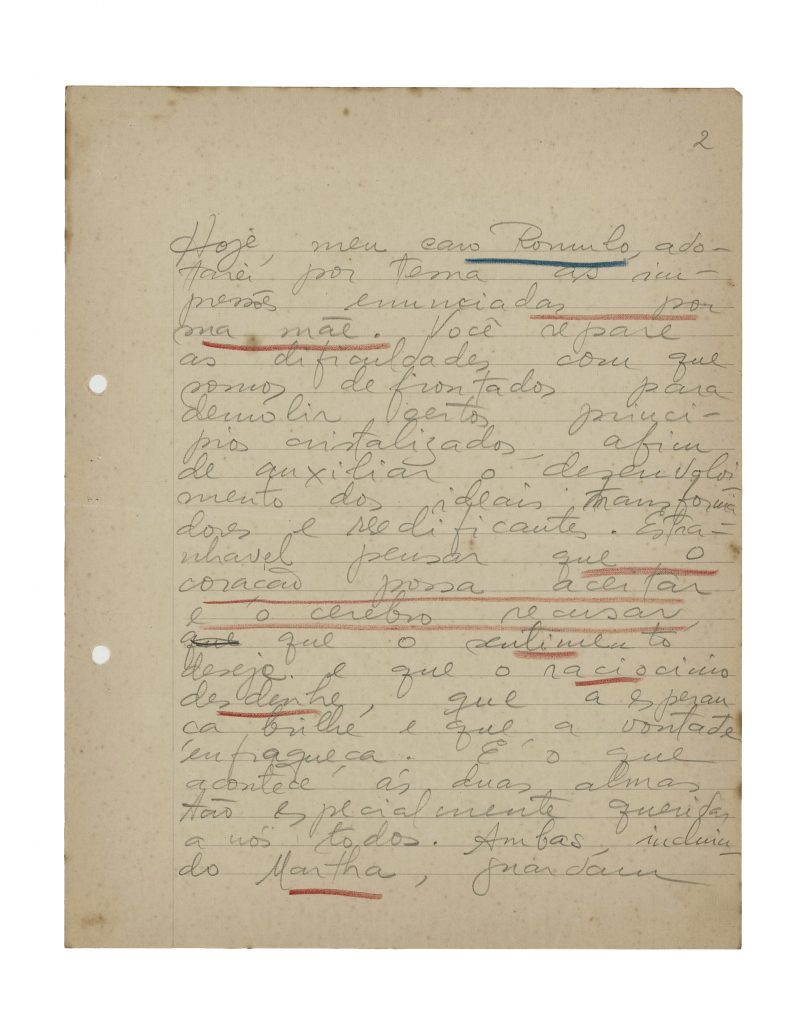 2
Hoje, meu caro Romulo, ado-
tarei por tema as im-
pressões enunciadas por
sua mãe. Você repare
as dificuldades com que
somos defrontados para
demolir certos princi-
pios cristalizados, afim
de auxiliar o desenvolvi
mento dos ideais transforma
dores e reedificantes. Estra-
nhavel pensar que o
coração possa aceitar
e o cerebro recusar,
que que o sentimento
deseje e que o raciocinio
desdenhe, que a esperan
ça brilhe e que a vontade
enfraqueça. É o que
acontece ás duas almas
tão especialmente queridas
a nós todos. Ambas, incluin-
do Martha, guardam